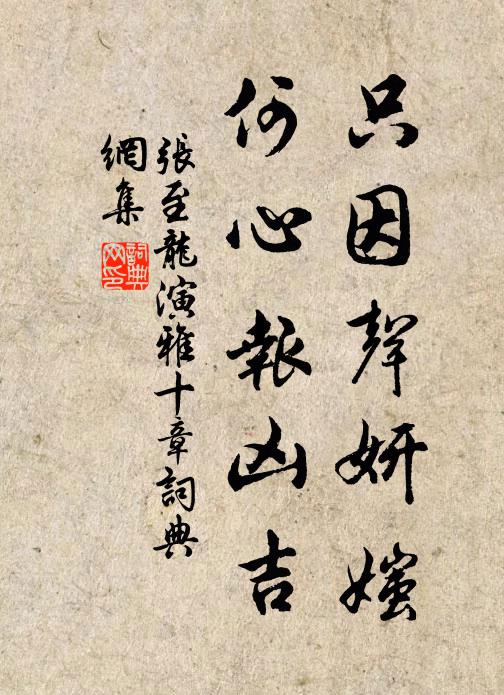 只因聲妍媸
何心報凶吉
張至龍演雅十章詞典
網集
詞典
网印